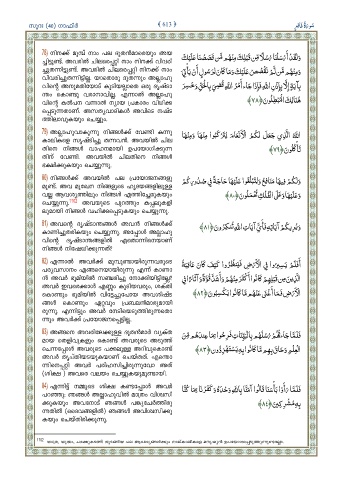 സൂറ (40) ഗാഫിർ ﴾ 613 ﴿ سُورَةُ غَافِر
78) നിനക്ക് മുമ്പ് നാം പല ദൂതൻമാരെയും അയ
ച്ചിട്ടുണ്ട്. അവരിൽ ചിലരെപ്പറ്റി നാം നിനക്ക് വിവരി
ച്ചുതന്നിട്ടുണ്ട്. അവരിൽ ചിലരെപ്പറ്റി നിനക്ക് നാം
വിവരിച്ചുതന്നിട്ടില്ല. യാതൊരു ദൂതന്നും അല്ലാഹു
വിന്റെ അനുമതിയോട് കൂടിയല്ലാതെ ഒരു ദൃഷ്ടാ
ന്തം കൊണ്ടു വരാനാവില്ല. എന്നാൽ അല്ലാഹു
വിന്റെ കൽപന വന്നാൽ ന്യായ പ്രകാരം വിധിക്ക
പ്പെടുന്നതാണ്. അസത്യവാദികൾ അവിടെ നഷ്ട
ത്തിലാവുകയും ചെയ്യും.
وَلَقَدْ أَرْسَلْنَا رُسُلًا مِّن قَبْلِكَ مِنْهُم مَّن قَصَصْنَا عَلَيْكَ
وَمِنْهُم مَّن لَّمْ نَقْصُصْ عَلَيْكَ وَمَا كَانَ لِرَسُولٍ أَن يَأْتِيَ
بِآيَةٍ إِلَّا بِإِذْنِ اللَّهِ فَإِذَا جَاءَ أَمْرُ اللَّهِ قُضِيَ بِالْحَقِّ وَخَسِرَ
هُنَالِكَ الْمُبْطِلُونَ ﴿٧٨﴾
79) അല്ലാഹുവാകുന്നു നിങ്ങൾക്ക് വേണ്ടി കന്നു
കാലികളെ സൃഷ്ടിച്ചു തന്നവൻ. അവയിൽ ചില
തിനെ നിങ്ങൾ വാഹനമായി ഉപയോഗിക്കുന്ന
തിന് വേണ്ടി. അവയിൽ ചിലതിനെ നിങ്ങൾ
ഭക്ഷിക്കുകയും ചെയ്യുന്നു.
اللَّهُ الَّذِي جَعَلَ لَكُمُ الْأَنْعَامَ لِتَرْكَبُوا مِنْهَا وَمِنْهَا
تَأْكُلُونَ ﴿٧٩﴾
80) നിങ്ങൾക്ക് അവയിൽ പല പ്രയോജനങ്ങളു
മുണ്ട്. അവ മുഖേന നിങ്ങളുടെ ഹൃദയങ്ങളിലുള്ള
വല്ല ആവശ്യത്തിലും നിങ്ങൾ എത്തിച്ചേരുകയും
ചെയ്യുന്നു. അവയുടെ പുറത്തും കപ്പലുകളി
ലുമായി നിങ്ങൾ വഹിക്കപ്പെടുകയും ചെയ്യുന്നു.
وَلَكُمْ فِيهَا مَنَافِعُ وَلِتَبْلُغُوا عَلَيْهَا حَاجَةً فِي صُدُورِكُمْ
وَعَلَيْهَا وَعَلَى الْفُلْكِ تُحْمَلُونَ ﴿٨٠﴾
81) അവന്റെ ദൃഷ്ടാന്തങ്ങൾ അവൻ നിങ്ങൾക്ക്
കാണിച്ചുതരികയും ചെയ്യുന്നു. അപ്പോൾ അല്ലാഹു
വിന്റെ ദൃഷ്ടാന്തങ്ങളിൽ ഏതൊന്നിനെയാണ്
നിങ്ങൾ നിഷേധിക്കുന്നത്!
وَيُرِيكُمْ آيَاتِهِ فَأَيَّ آيَاتِ اللَّهِ تُنكِرُونَ ﴿٨١﴾
82) എന്നാൽ അവർക്ക് മുമ്പുണ്ടായിരുന്നവരുടെ
പര്യവസാനം എങ്ങനെയായിരുന്നു എന്ന് കാണാ
ൻ അവർ ഭൂമിയിൽ സഞ്ചരിച്ചു നോക്കിയിട്ടില്ലേ?
അവർ ഇവരെക്കാൾ എണ്ണം കൂടിയവരും, ശക്തി
കൊണ്ടും ഭൂമിയിൽ വിട്ടേച്ചുപോയ അവശിഷ്ട
ങ്ങൾ കൊണ്ടും ഏറ്റവും പ്രബലൻമാരുമായി
രുന്നു. എന്നിട്ടും അവർ നേടിയെടുത്തിരുന്നതൊ
ന്നും അവർക്ക് പ്രയോജനപ്പെട്ടില്ല.
أَفَلَمْ يَسِيرُوا فِي الْأَرْضِ فَيَنظُرُوا كَيْفَ كَانَ عَاقِبَةُ
الَّذِينَ مِن قَبْلِهِمْ كَانُوا أَكْثَرَ مِنْهُمْ وَأَشَدَّ قُوَّةً وَآثَارًا فِي
الْأَرْضِ فَمَا أَغْنَى عَنْهُم مَّا كَانُوا يَكْسِبُونَ ﴿٨٢﴾
83) അങ്ങനെ അവരിലേക്കുള്ള ദൂതൻമാർ വ്യക്ത
മായ തെളിവുകളും കൊണ്ട് അവരുടെ അടുത്ത്
ചെന്നപ്പോൾ അവരുടെ പക്കലുള്ള അറിവുകൊണ്ട്
അവർ തൃപ്തിയടയുകയാണ് ചെയ്തത്. എന്തൊ
ന്നിനെപ്പറ്റി അവർ പരിഹസിച്ചിരുന്നുവോ അത്
(ശിക്ഷ) അവരെ വലയം ചെയ്യുകയുമുണ്ടായി.
فَلَمَّا جَاءَتْهُمْ رُسُلُهُم بِالْبَيِّنَاتِ فَرِحُوا بِمَا عِندَهُم مِّنَ
الْعِلْمِ وَحَاقَ بِهِم مَّا كَانُوا بِهِ يَسْتَهْزِئُونَ ﴿٨٣﴾
84) എന്നിട്ട് നമ്മുടെ ശിക്ഷ കണ്ടപ്പോൾ അവർ
പറഞ്ഞു: ഞങ്ങൾ അല്ലാഹുവിൽ മാത്രം വിശ്വസി
ക്കുകയും അവനോട് ഞങ്ങൾ പങ്കുചേർത്തിരു
ന്നതിൽ (ദൈവങ്ങളിൽ) ഞങ്ങൾ അവിശ്വസിക്കു
കയും ചെയ്തിരിക്കുന്നു.
فَلَمَّا رَأَوْا بَأْسَنَا قَالُوا آمَنَّا بِاللَّهِ وَحْدَهُ وَكَفَرْنَا بِمَا كُنَّا
بِهِ مُشْرِكِينَ ﴿٨٤﴾